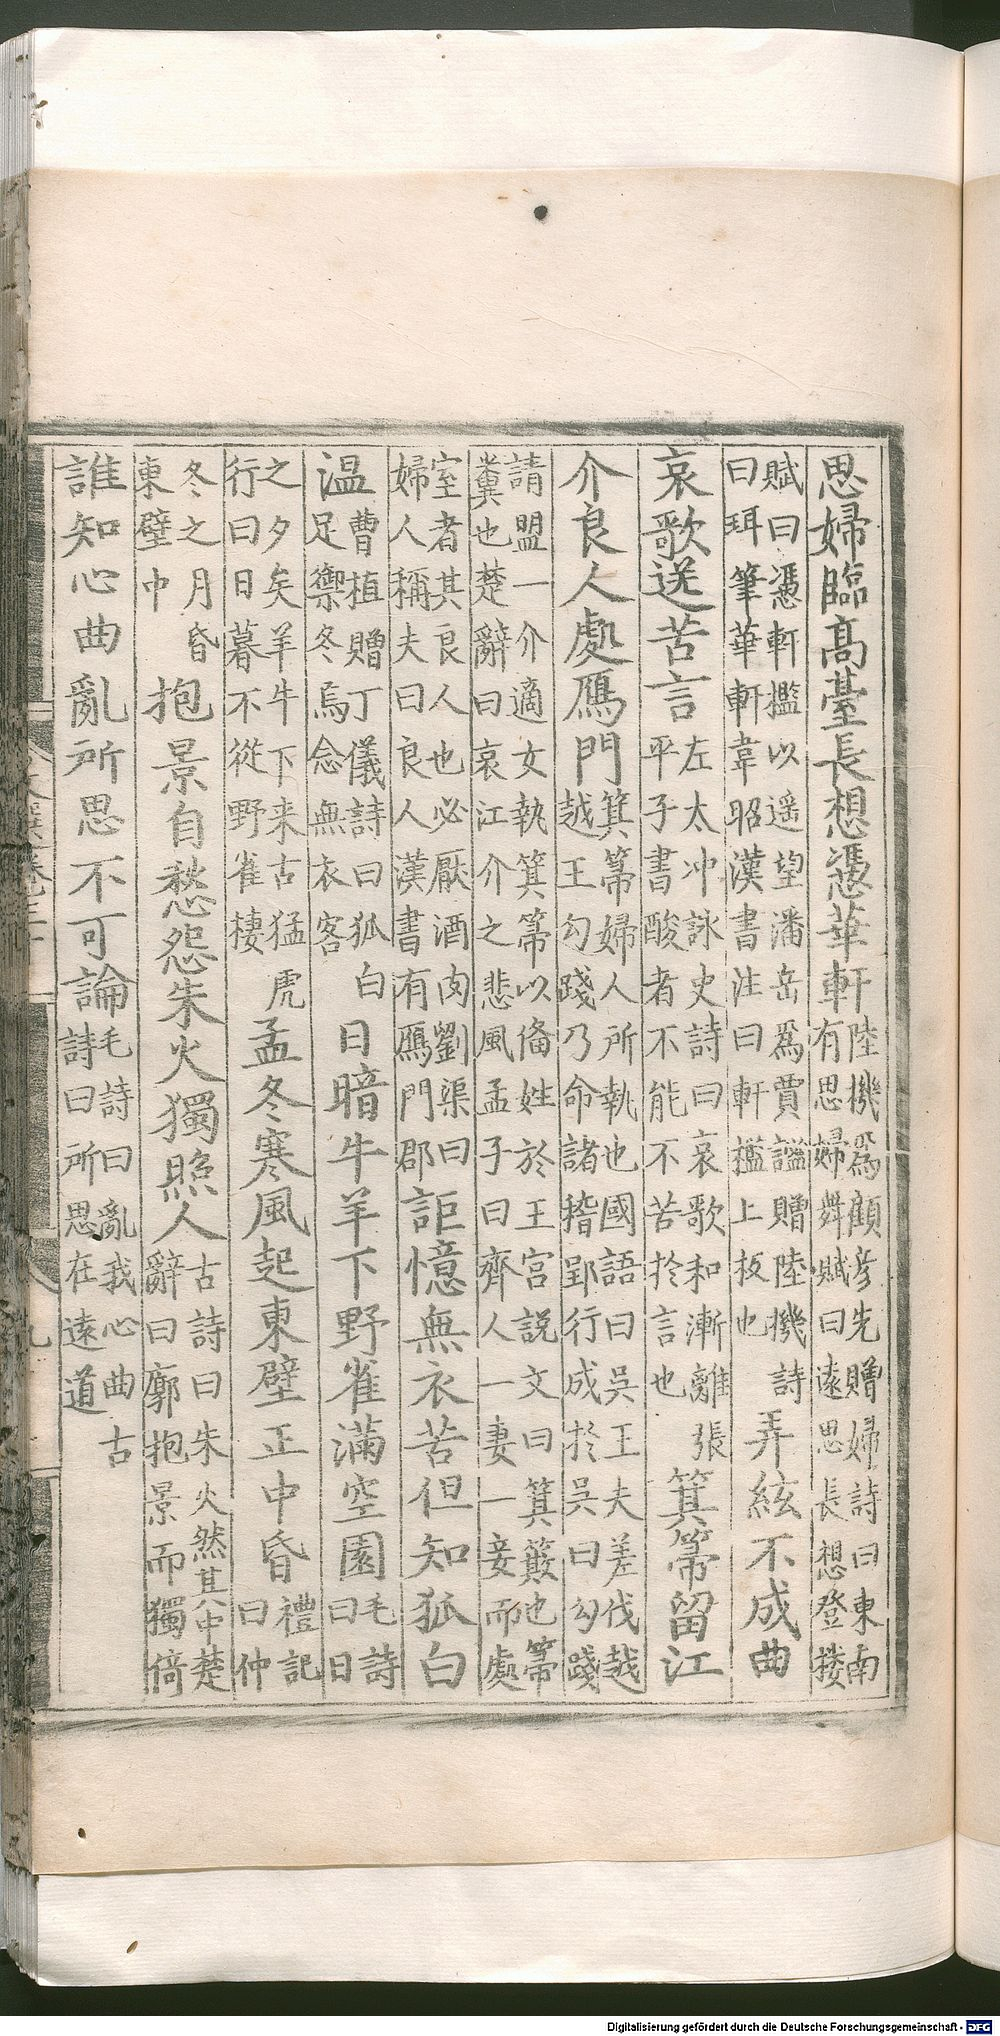 思婦臨高臺長想憑華軒陸機爲顧彦先贈婦詩曰東南
有思婦舞賦曰遠思長想登樓
賦曰憑軒檻以遥望潘岳爲賈謐贈陸機詩
曰珥筆華軒韋昭漢書注曰軒檻上板也弄絃不成曲
哀歌送苦言左太冲詠史詩曰哀歌和漸離張
平子書酸者不能不苦於言也箕箒留江
介良人處鴈門箕箒婦人所執也國語曰吳王夫差伐越
越王勾踐乃命諸稽郢行成於吳曰勾踐
請盟一介適女執箕箒以俻姓於王宫説文曰箕簸也箒
糞也楚辭曰哀江介之悲風孟子曰齊人一妻一妾而處
室者其良人也必厭酒肉劉渠曰
婦人稱夫曰良人漢書有鴈門郡詎憶無衣苦但知狐白
温曹植贈丁儀詩曰狐白
足禦冬焉念無衣客日暗牛羊下野雀滿空園毛詩
曰日
之夕矣羊牛下来古猛虎
行曰日暮不從野雀棲孟冬寒風起東壁正中昏禮記
曰仲
冬之月昏
東壁中抱景自愁怨朱火獨照人古詩曰朱火然其中楚
辭曰廓抱景而獨倚
誰知心曲亂所思不可論毛詩曰亂我心曲古
詩曰所思在遠道
Digitalisierung gefördert durch die Deutsche Forschungsgemeinschaft - DFG